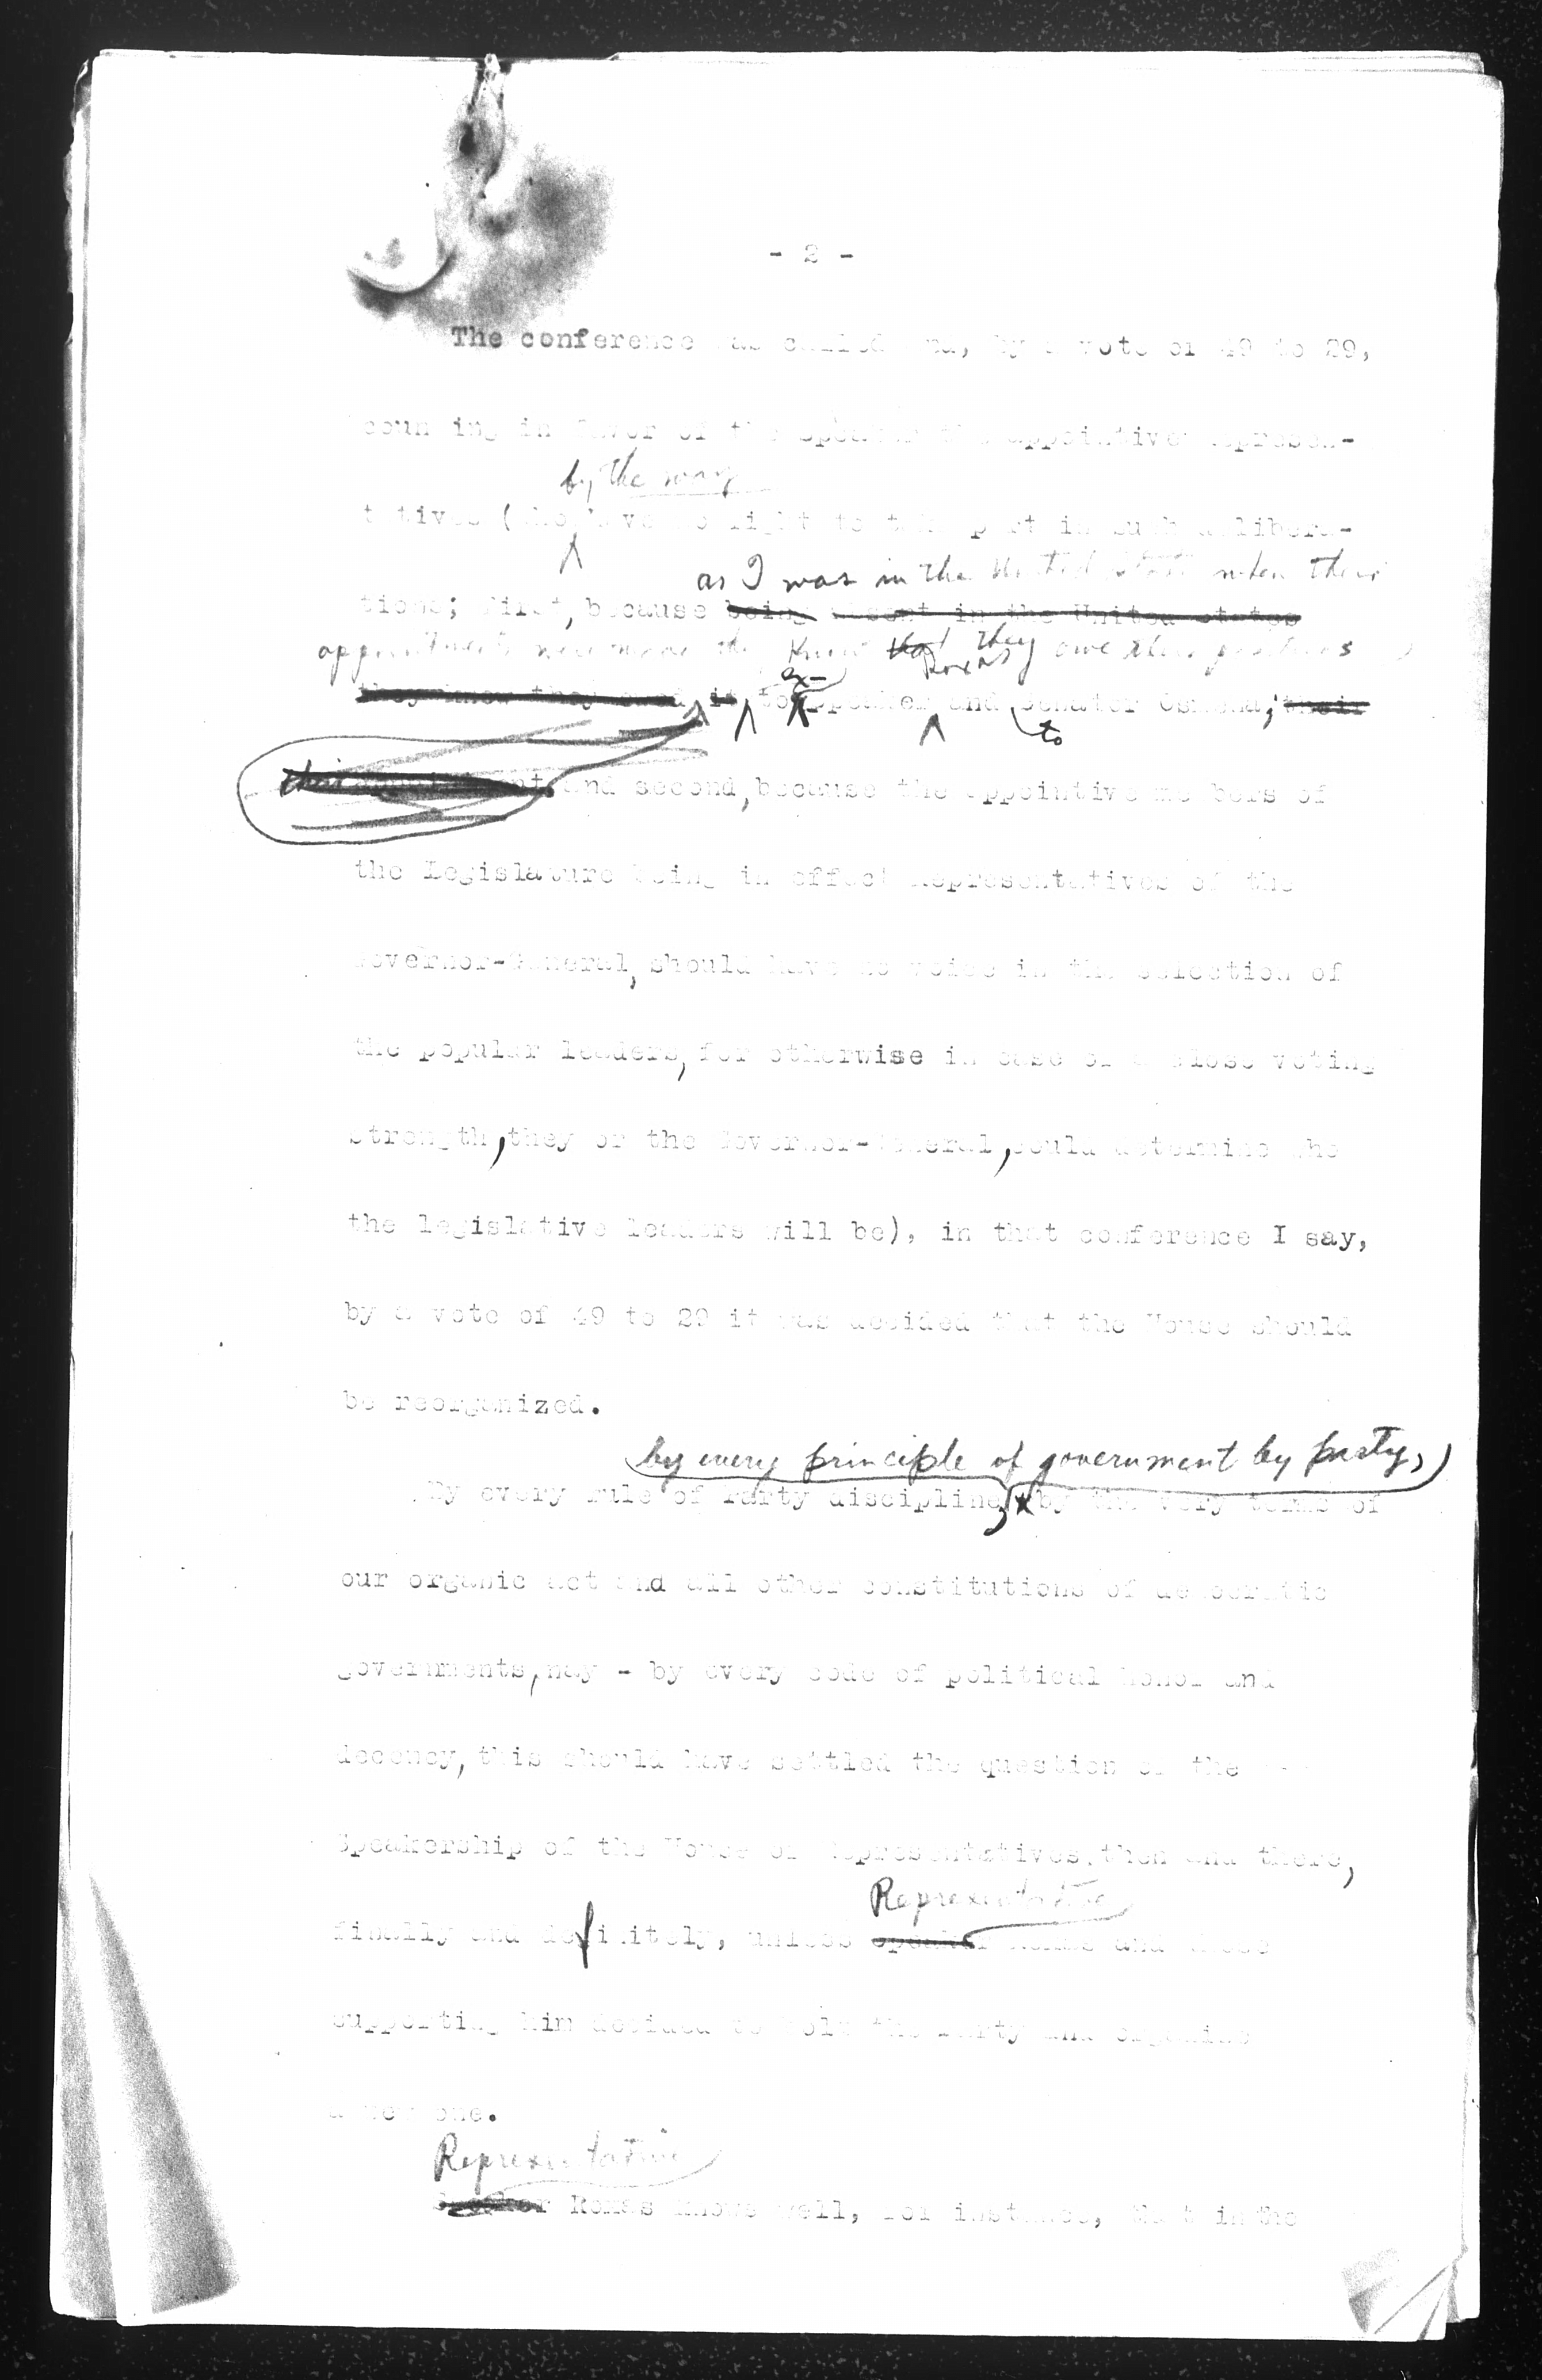 - 2 -
The conference was called and, by a vote of 49 to 29,
counting in favor of the Speaker the appointive represen-
by the way
tatives (who have no right to take part in such delibera-
as I was in the United States when their
tions; first, because being absent in the United States
appointments were made they know that they owe their positions
ex- Roxas
they know they owed it to Speaker and Senator Osmeña, their
to
and second, because the appointive members of
the Legislature being in effect Representatives of the
Governor-General, should have no voice in the selection of
the popular leaders, for otherwise in case of a close voting
strength, they or the Governor-General, could determine who
the legislative leaders will be), in that conference I say,
by a vote of 49 to 29 it was decided that the House should
be reorganized.
by every principle of government by party,
By every rule of Party discipline, by the very terms of
our organic act and all other constitutions of democratic
governments, nay - by every code of political honor and
decency, this should have settled the question of the
Speakership of the House of Representatives then and there,
Representative
finally and definitely, unless Speaker Roxas and those
supporting him decided to bolt the Party and organize
a new one.
Representative
Speaker Roxas knows well, for instance, that in the